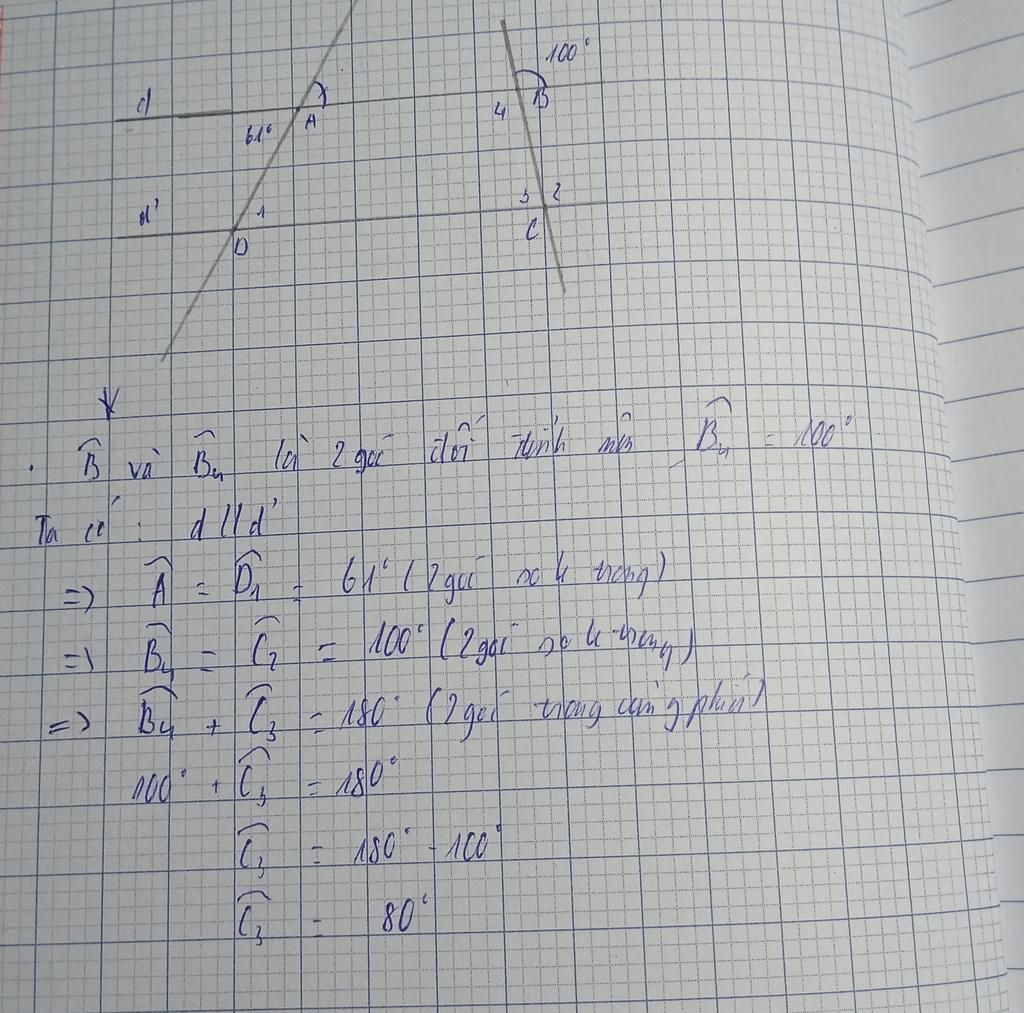 100°
d
B
4
A
61°
d'
1
3 2
D
C
B̂ và B̂₄ là 2 góc đối đỉnh nên B̂₄ = 100°
Ta có : d // d'
=> Â = D̂₁ = 61° (2 góc so le trong)
=> B̂₄ = Ĉ₂ = 100° (2 góc so le trong)
=> B̂₄ + Ĉ₃ = 180° (2 góc trong cùng phía)
100° + Ĉ₃ = 180°
Ĉ₃ = 180° - 100°
Ĉ₃ = 80°